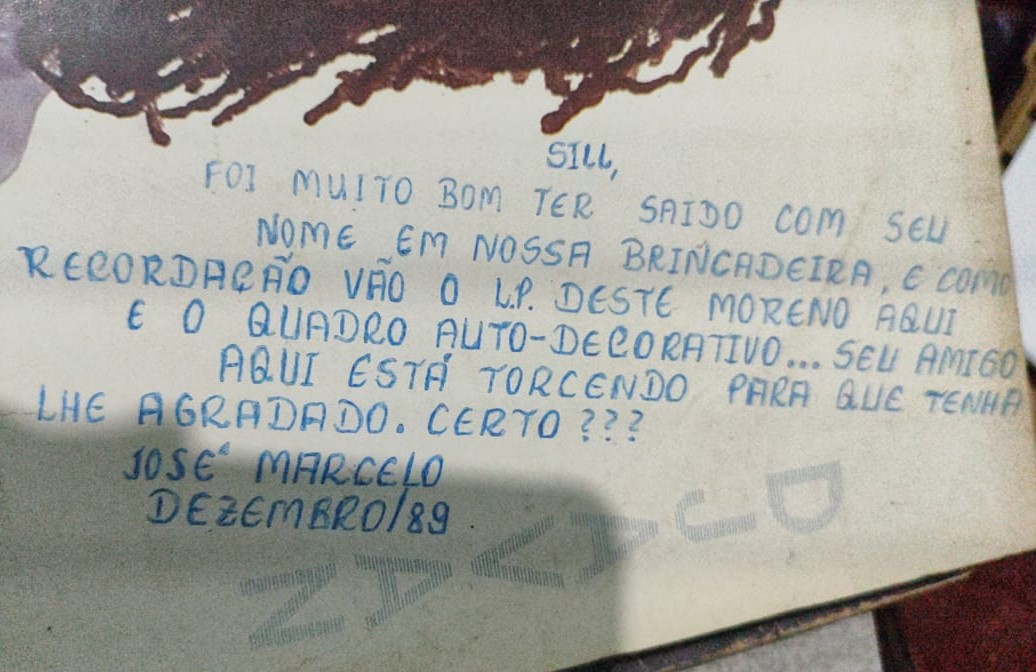 SILL,
FOI MUITO BOM TER SAIDO COM SEU
NOME EM NOSSA BRINCADEIRA, E COMO
RECORDAÇÃO VÃO O L.P. DESTE MORENO AQUI
E O QUADRO AUTO-DECORATIVO... SEU AMIGO
AQUI ESTÁ TORCENDO PARA QUE TENHA
LHE AGRADADO. CERTO ???
JOSÉ MARCELO
DEZEMBRO/89
DJAVAN